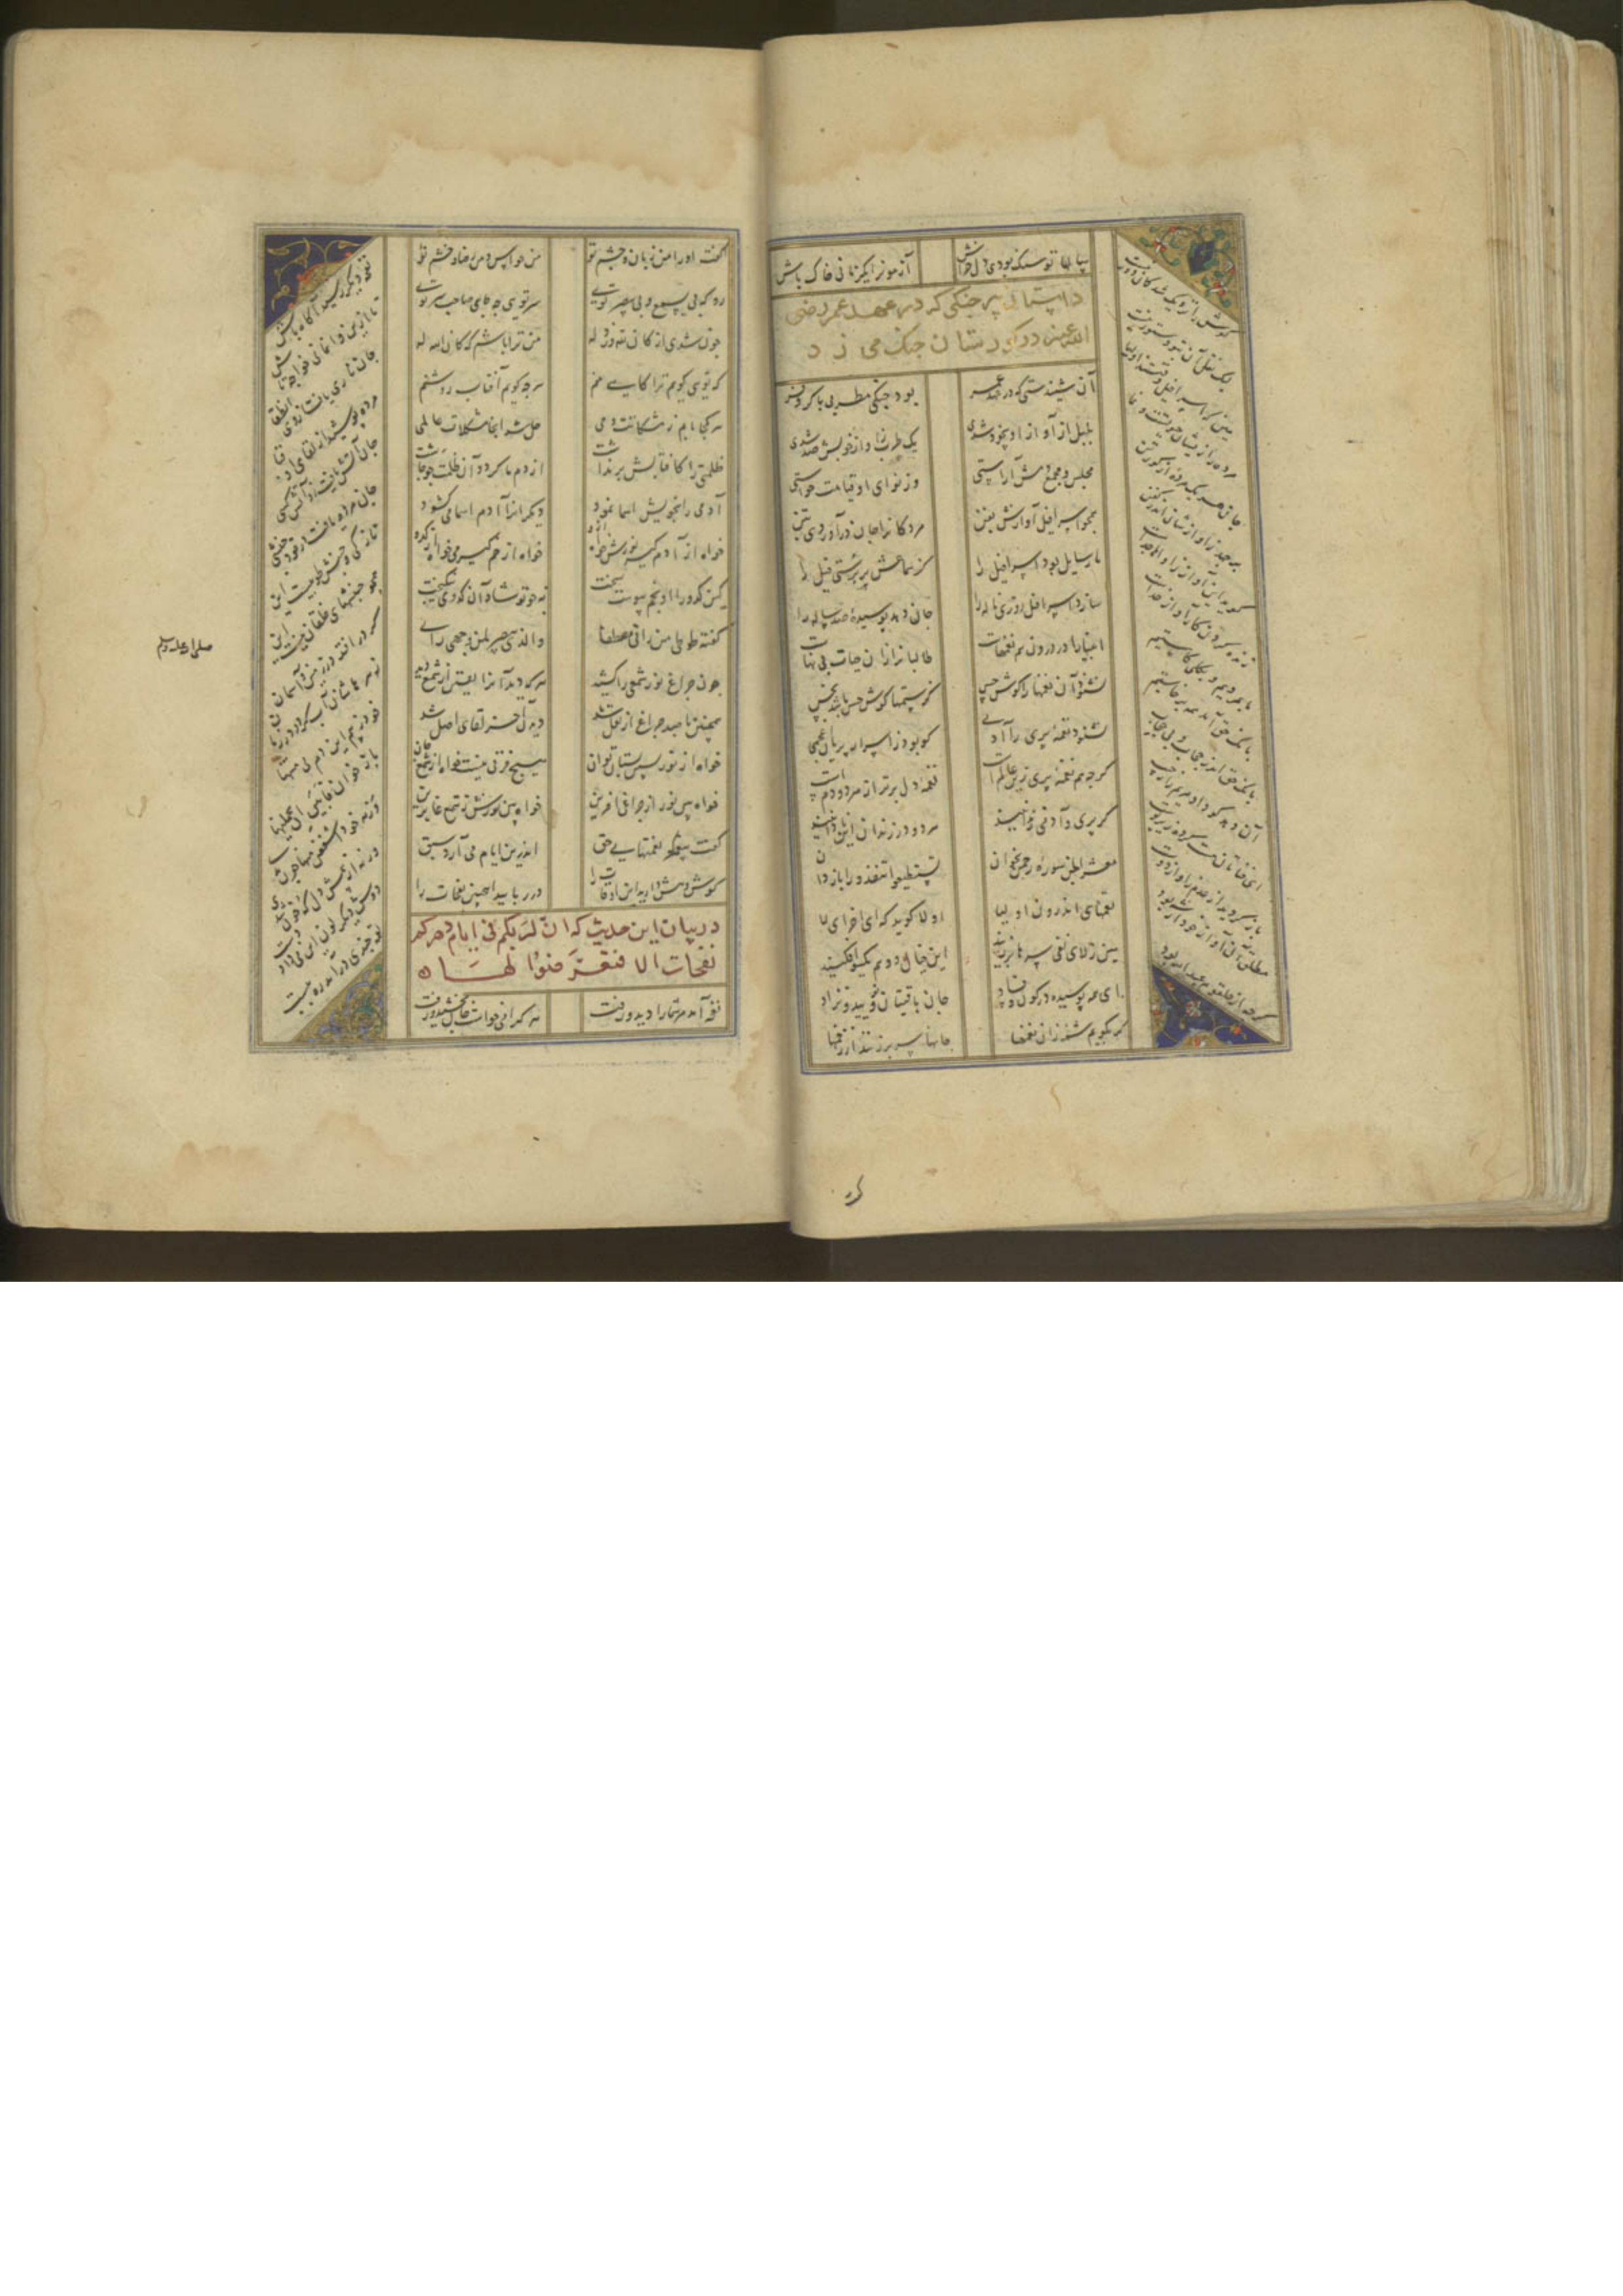 سالها تو سنگ بودی دلخراش آزمون را یکزمانی خاک باش
داستان پیر چنگی که در عهد عمر رضی
الله عنه در گورستان چنگ می زد
آن شنیدستی که در عهد عمر بود چنگی مطربی با کر و فر
بلبل از آواز او بیخود شدی یک طرب ز آواز خوبش صد شدی
مجلس و مجمع دمش آراستی وز نوای او قیامت خاستی
همچو اسرافیل آوازش بفن مردگانرا جان درآوردی بتن
یا رسایل بود اسرافیل را کز سماعش پر برستی فیل را
سازد اسرافیل روزی ناله را جان دهد پوسیده صدساله را
انبیا را در درون هم نغمهاست طالبانرا زان حیات بی بهاست
نشنود آن نغمها را گوش حس کز ستمها گوش حس باشد نجس
نشنود نغمه پری را آدمی کو بود ز اسرار پریان عجمی
گر چه هم نغمه پری زین عالم است نغمه دل برتر از هر دو دم است
گر پری و آدمی زندانیند هر دو در زندان این نادانیند
معشر الجن سوره رحمن بخوان تستطیعوا تنفذوا را باز دان
نغمهای اندرون اولیا اولا گوید که ای اجزای لا
هین ز لای نفی سرها بر زنید این خیال و وهم یکسو افکنید
ای همه پوسیده در کون و فساد جان باقیتان نرویید و نزاد
گر بگویم شمه زان نغمها جانها سر بر زنند از دخمها
گوش را نزدیک کن کان دور نیست
لیک نقل آن بتو دستور نیست
هین که اسرافیل وقتند اولیا
مرده را زیشان حیاتست و نما
جان هر یک مرده از گور تن
بر جهد ز آوازشان اندر کفن
گوید این آواز ز آواها جداست
زنده کردن کار آواز خداست
ما بمردیم و بکلی کاستیم
بانگ حق آمد همه برخاستیم
بانگ حق اندر حجاب و بی حجیب
آن دهد کو داد مریم را ز جیب
ای فناتان نیست کرده زیر پوست
باز گردید از عدم ز آواز دوست
مطلق آن آواز خود از شه بود
گر چه از حلقوم عبد الله بود
گفت او را من زبان و چشم تو من حواس و من رضا و خشم تو
رو که بی یسمع و بی یبصر تویی سر تویی چه جای صاحب سر تویی
چون شدی از کان لله وز وله من ترا باشم که کان الله له
که تویی گویم ترا گاهی منم هر چه گویم آفتاب روشنم
هر کجا تابم ز مشکات دمی حل شد آنجا مشکلات عالمی
ظلمتی را کافتابش برنداشت از دم ما گردد آن ظلمت چو چاشت
آدمی را او بخویش اسما نمود دیگرانرا ز آدم اسما می گشود
خواه از آدم گیر نورش خواه ازو خواه از خم گیر می خواه از کدو
کین کدو را با خم پیوست سخت نه چو تو شاد آن کدوی نیکبخت
گفت طوبی من رآنی مصطفا والذی یبصر لمن وجهی رای
چون چراغی نور شمعی را کشید هر که دید آنرا یقین آن شمع دید
همچنین تا صد چراغ ار نقل شد دیدن آخر لقای اصل شد
خواه از نور پسین بستان تو آن هیچ فرقی نیست خواه از شمع جان
خواه بین نور از چراغ آخرین خواه بین نورش ز شمع غابرین
گفت پیغمبر که نفحتهای حق اندرین ایام می آرد سبق
گوش و هش دارید این اوقات را در ربایید اینچنین نفحات را
در بیان این حدیث که ان لربکم فی ایام دهرکم
نفحات الا فتعرضوا لها
نفحه آمد مر شما را دید و رفت هر که را می خواست جان بخشید و رفت
نفحه دیگر رسید آگاه باش
تا ازین هم وا نمانی خواجه تاش
جان آتش یافت زو آتش کشی
جان مرده یافت از وی جنبشی
تازگی و جنبش طوبیست این
همچو جنبشهای خلقان نیست این
گر در افتد در زمین و آسمان
زهرهاشان آب گردد در زمان
خود ز بیم این دم بی منتها
باز خوان فابین ان یحملنها
ورنه خود اشفقن منها چون بدی
گرنه از بیمش دل که خون شدی
دوش دیگر لون این می داد دست
لقمه چندی درآمد ره ببست
صلی الله علیه وسلم